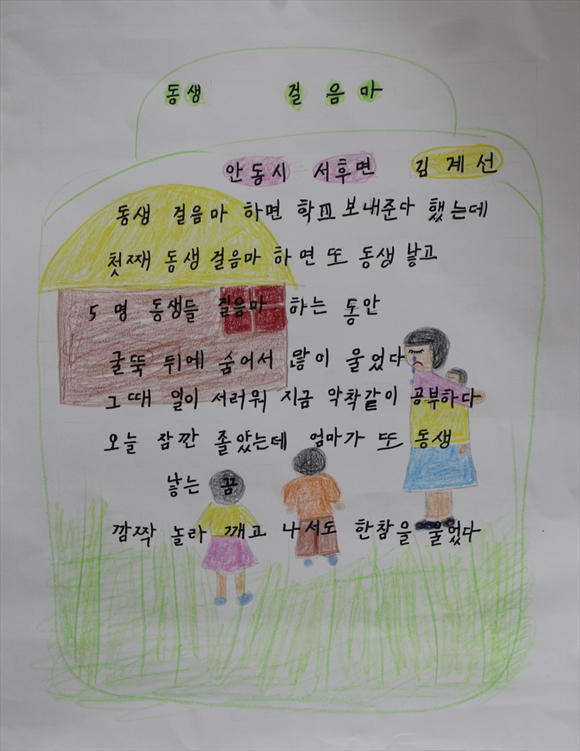 동생 걸음마
안동시 서후면 김계선
동생 걸음마 하면 학교 보내준다 했는데
첫째 동생 걸음마 하면 또 동생 낳고
5명 동생들 걸음마 하는 동안
굴뚝 뒤에 숨어서 많이 울었다
그때 일이 서러워 지금 악착같이 공부하다
오늘 잠깐 졸았는데 엄마가 또 동생
낳는 꿈
깜짝 놀라 깨고 나서도 한참을 울었다